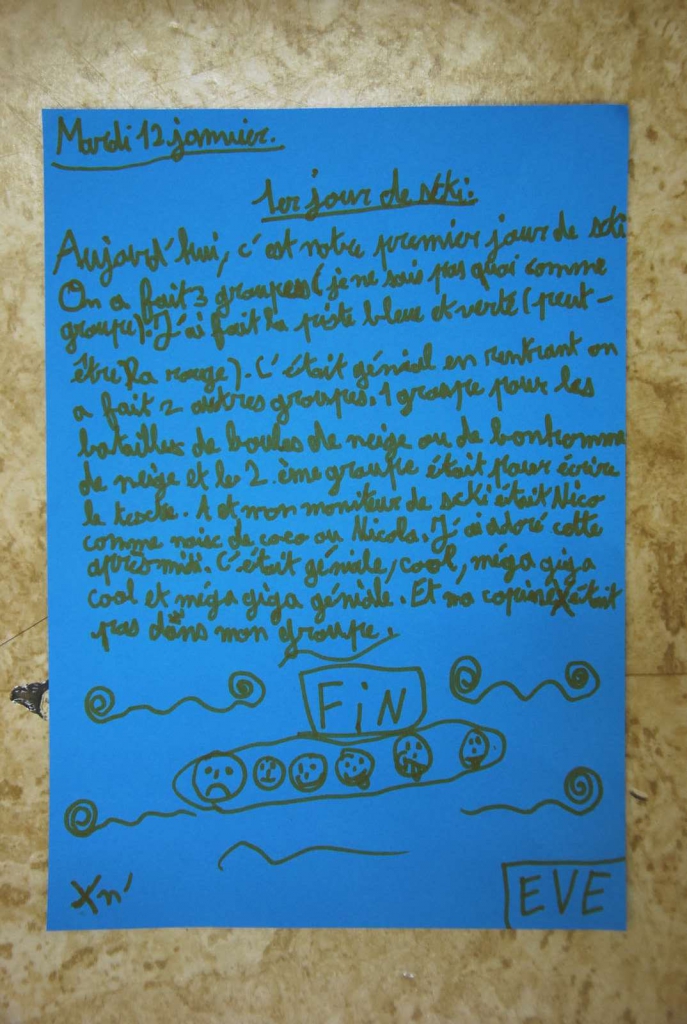 Mardi 12 janvier.
1er jour de scki:
Aujourd'hui, c'est notre premier jour de scki
On a fait 3 groupes (je ne sais pas quoi comme
groupe). J'ai fait la piste bleue et verte (peut-
être la rouge). C'était génial en rentrant on
a fait 2 autres groupes. 1 groupe pour les
batailles de boules de neige ou de bonhomme
de neige et le 2.ème groupe était pour écrire
le texte. A et mon moniteur de scki était Nico
comme noix de coco ou Nicola. J'ai adoré cette
après midi. C'était géniale, cool, méga giga
cool et méga giga géniale. Et ma copine était
pas dans mon groupe.
FiN
Xn'
EVE